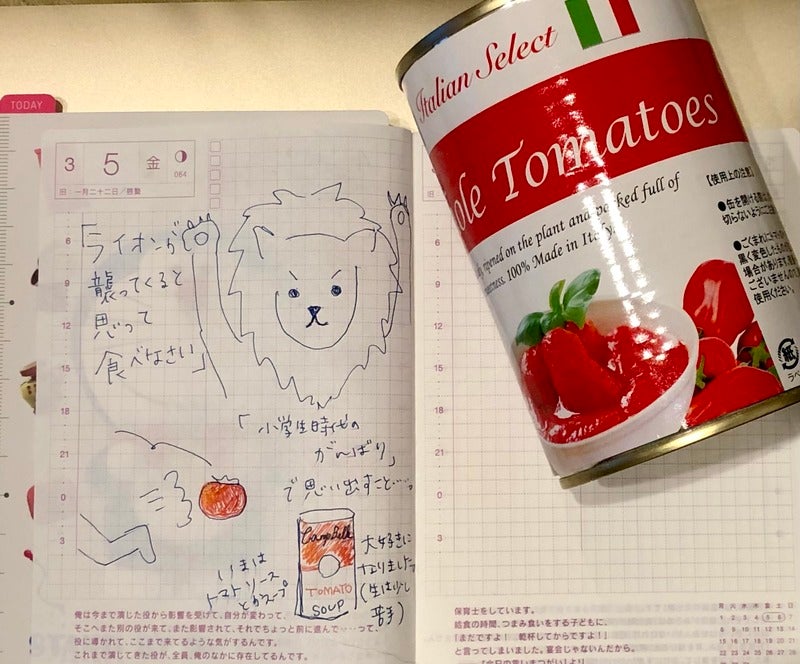 TODAY
3 5 金
064
旧:一月二十二日/啓蟄
6
9
12
15
18
21
0
3
「ライオンが
襲ってくると
思って
食べなさい」
「小学生時代の
がんばり」
で思い出すこと……。
いまは
トマトソース
とかスープ
CampBell
TOMATO
SOUP
大好きに
なりました
(生は少し
苦手)
俺は今まで演じた役から影響を受けて、自分が変わって、
そこへまた別の役が来て、また影響されて、それでちょっと前に進んで……って、
役に導かれて、ここまで来てるような気がするんです。
これまで演じてきた役が、全員、俺のなかに存在してるんです。
Italian Select
ole Tomatoes
ripened on the plant and packed full of
100% Made in Italy.
【使用上の注意】
●缶を開ける際に
切らないようにご注
●ごくまれに
黒く変色した
場合があります
ございませんの
使用ください。
紙
ラベ
3
保育士をしています。
給食の時間、つまみ食いをする子どもに、
「まだですよ! 乾杯してからですよ!」
と言ってしまいました。宴会じゃないんだから。
月 火 水 木 金 土 日
1 2 3 4 5 6 7
8 9 10 11 12 13 14
15 16 17 18 19 20 21
22 23 24 25 26 27 28